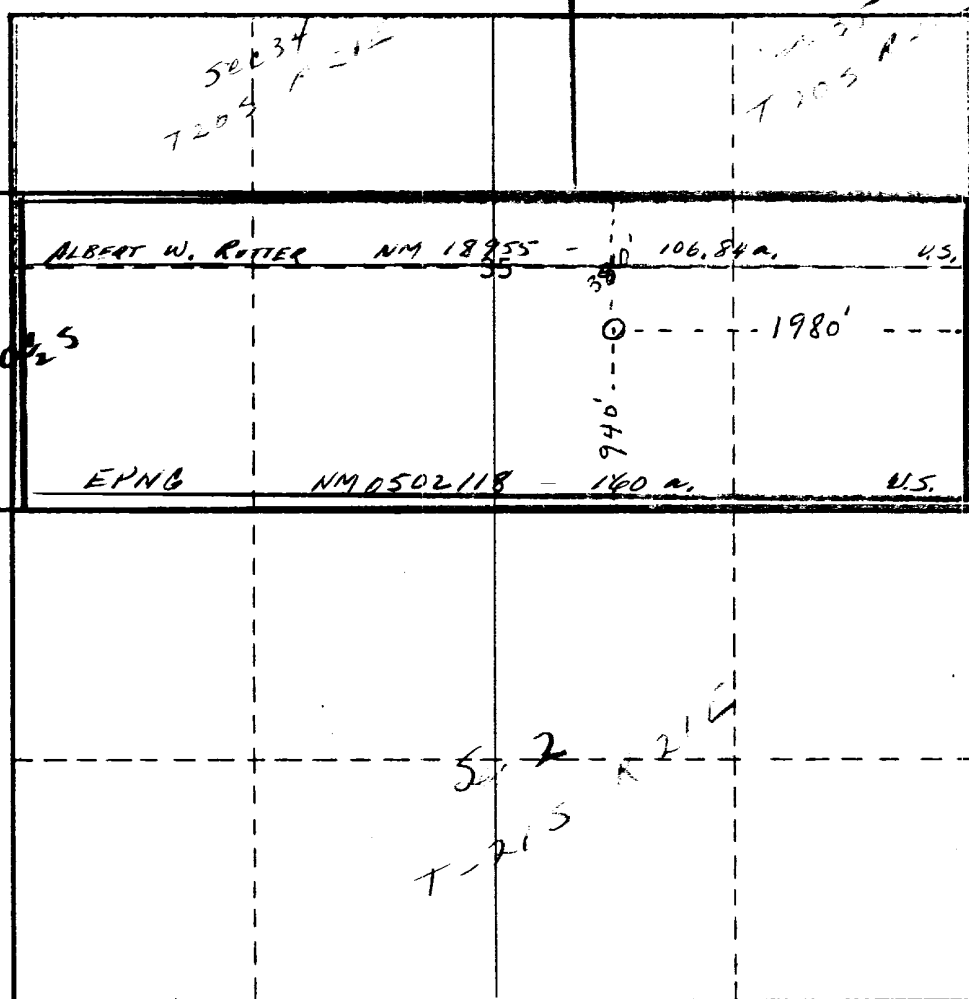 Sec 34
T 20 S
T 20 S
ALBERT W. RUTTER NM 18955 - 106.84 a. U.S.
35
1980'
940'
EPNG NM 0502118 - 160 a. U.S.
2
T-21 S R 21 E